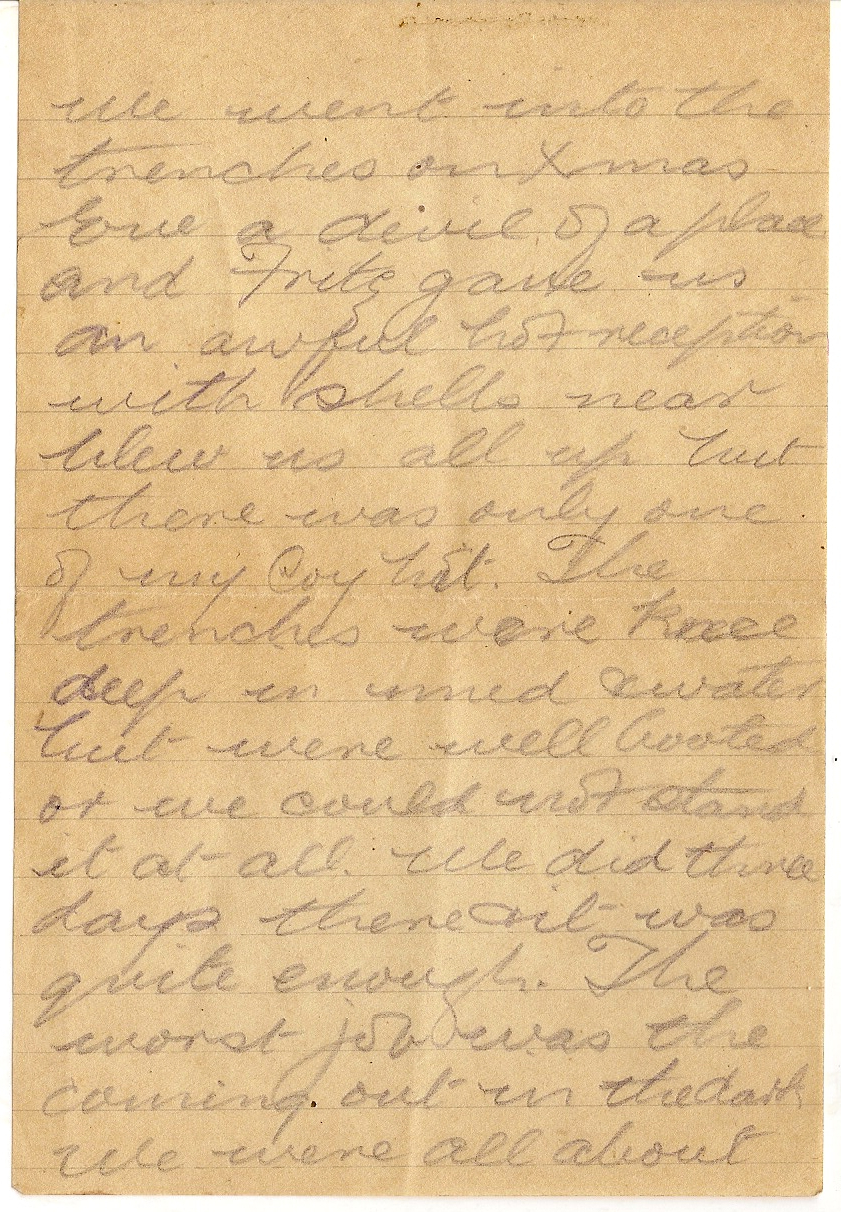 We went into the
trenches on Xmas
Eve a devil of a place
and Fritz gave us
an awful hot reception
with shells near
blew us all up but
there was only one
of my Coy hit. The
trenches were knee
deep in mud & water
but were well booted
or we could not stand
it at all. We did three
days there & it was
quite enough. The
worst job was the
coming out in the dark
We were all about